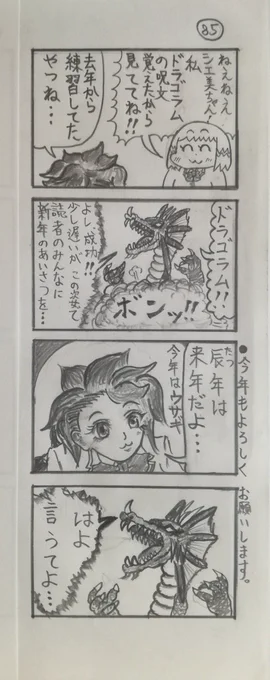 85
ねぇねぇ
シエ美ちゃん
私
ドラゴラム
の呪文
覚えたから
見ててね!!
去年から
練習してた
やつね…
ドラゴラム!!
ボンッ!!
よし、成功!!
少し遅いが、この姿で
読者のみんなに
新年のあいさつを…
●今年もよろしくお願いします。
辰年は
たつ
来年だよ…
今年はウサギ
はよ
言うてよ…